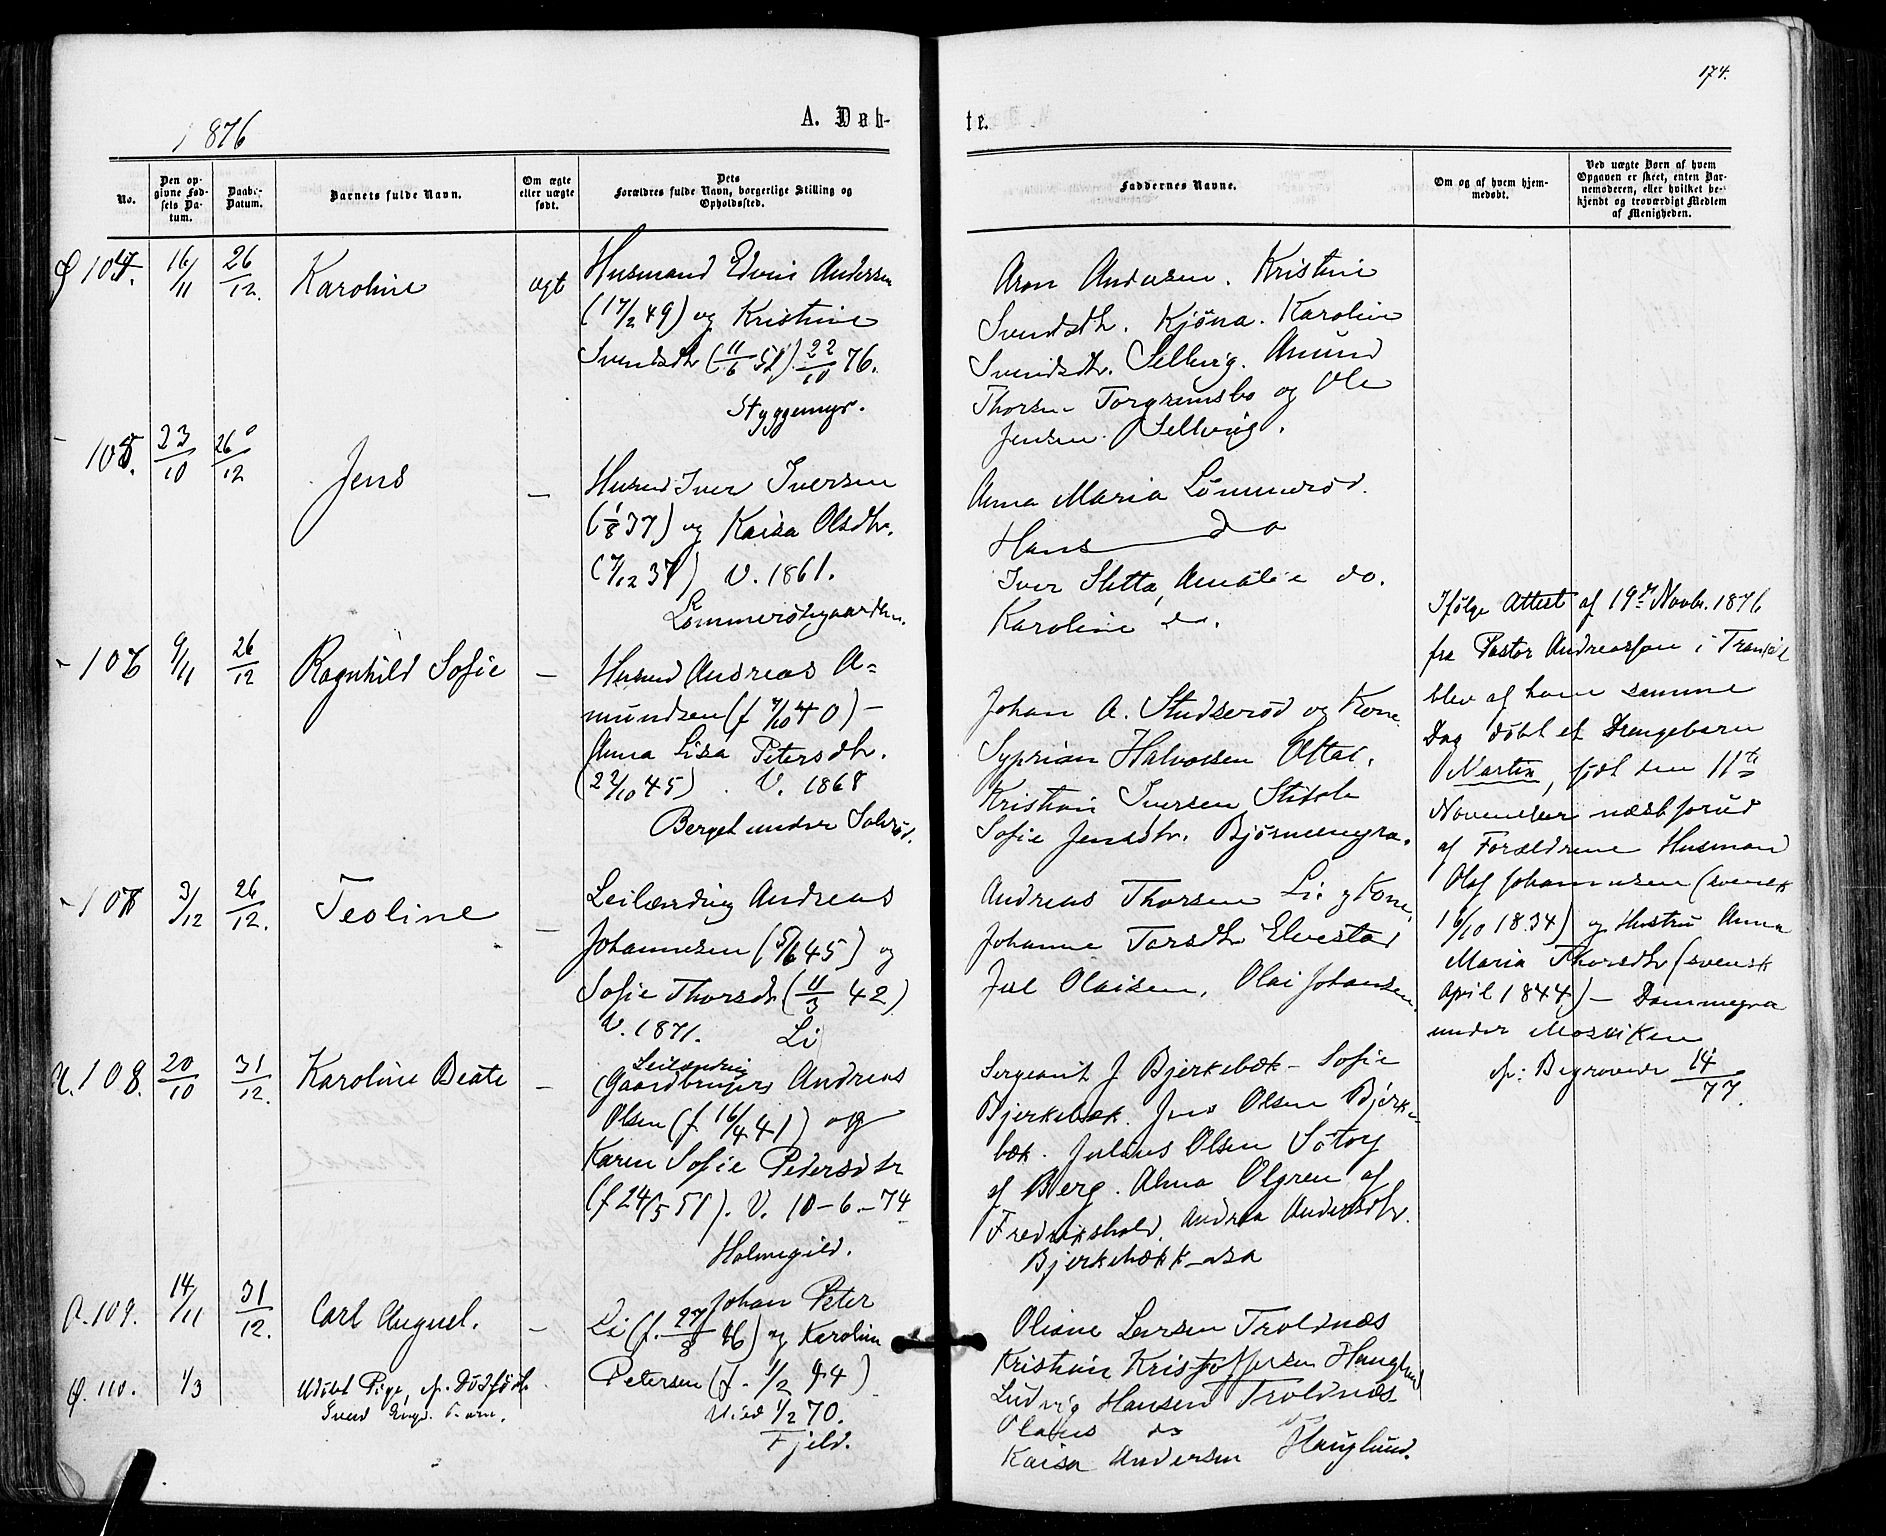 174.
1876
A. Døb-
te.
No.
Den op-
givne Fød-
sels Da-
tum.
Daabs-
Datum.
Barnets fulde Navn.
Om ægte
eller uægte
født.
Dets
Forældres fulde Navn, borgerlige Stilling og
Opholdssted.
Faddernes Navne.
Om og af hvem hjem-
medøbt.
Ved uægte Børn af hvem
Opgaven er skeet, enten Bar-
nemoderen, eller hvilket be-
kjendt og troværdigt Medlem
af Menigheden.
104. 16/11 26/12. Karoline ægt
Husmand Edvin Andersen
(17/2 49) og Kristine
Svendsdtr (11/6 51) 22/10 76.
Styggemyr.
Aron Andersen. Kristine
Svendsdtr. Kjöna. Karoline
Svendsdtr. Sellvig. Amund
Thorsen Torgrimsbo og Ole
Jensen. Sellvig.
105. 23/10 26/12 Jens –
Husmd Iver Iversen
(1/8 37) og Kaisa Olsdtr.
(7/12 37) V. 1861.
Anna Maria Lömmeröd.
Hans do
Iver Sletta, Amalie do.
Karoline do.
106 9/11 26/12 Ragnhild Sofie –
Husmd Andreas A=
mundsen (f 7/10 40) –
Anna Lisa Petersdtr.
(22/10 45). V. 1868
Berget under
Johan A. Studseröd og Kone.
Syprian Halvorsen
Kristian Iversen
Sofie Jensdtr.
107 3/12 26/12. Teoline –
Leilænding Andreas
Johannesen (5/6 45) og
Sofie Thorsdtr (11/3 42)
V. 1871. Li
Andreas Thorsen Li og Kone.
Johanne Torsdtr Elvestad
Juel Olaisen, Olai Johansen.
Ifølge Attest af 19de Novbr. 1876
fra Pastor Andreassen i
blev af ham samme
Dag döbt et Drengebarn
Martin, födt den 11te
November næstforud
af Forældrene Husmand
Olaf Johannesen (svensk
16/10 1834) og Hustru Anna
Maria Thorsdtr (svensk
April 1844) – Dammyra
under Mosviken
cfr: Begravede 14/77.
108. 20/10 31/12. Karoline Beate –
Leilænding
Gaardbruger Andreas
Olsen (f 16/4 41) og
Karen Sofie Pedersdtr
(f 24/5 51). V. 10-6-74
Holmegild.
Sergeant J Bjerkebæk – Sofie
Bjerkebæk. Jens Olsen Bjerke-
bæk. Julius Olsen
af Berg. Alma Olgren af
Fredrikshald. Andrea Andersdtr.
Bjerkebækk-asa
109. 14/11 31/12. Carl August. –
Johan Peter
Li (f. 27/8 46) og Karoline
Petersen (f. 1/2 44)
Vied 1/2 70.
Fjeld.
Oliane Larsen Troldnæs
Kristian Kristoffersen Hauglund
Ludvig Hansen Troldnæs
Olaus do
Kaisa Andersen Hauglund.
110. 1/3 Udöbt Pige, cfr. Dödfödte
Svend Barn.